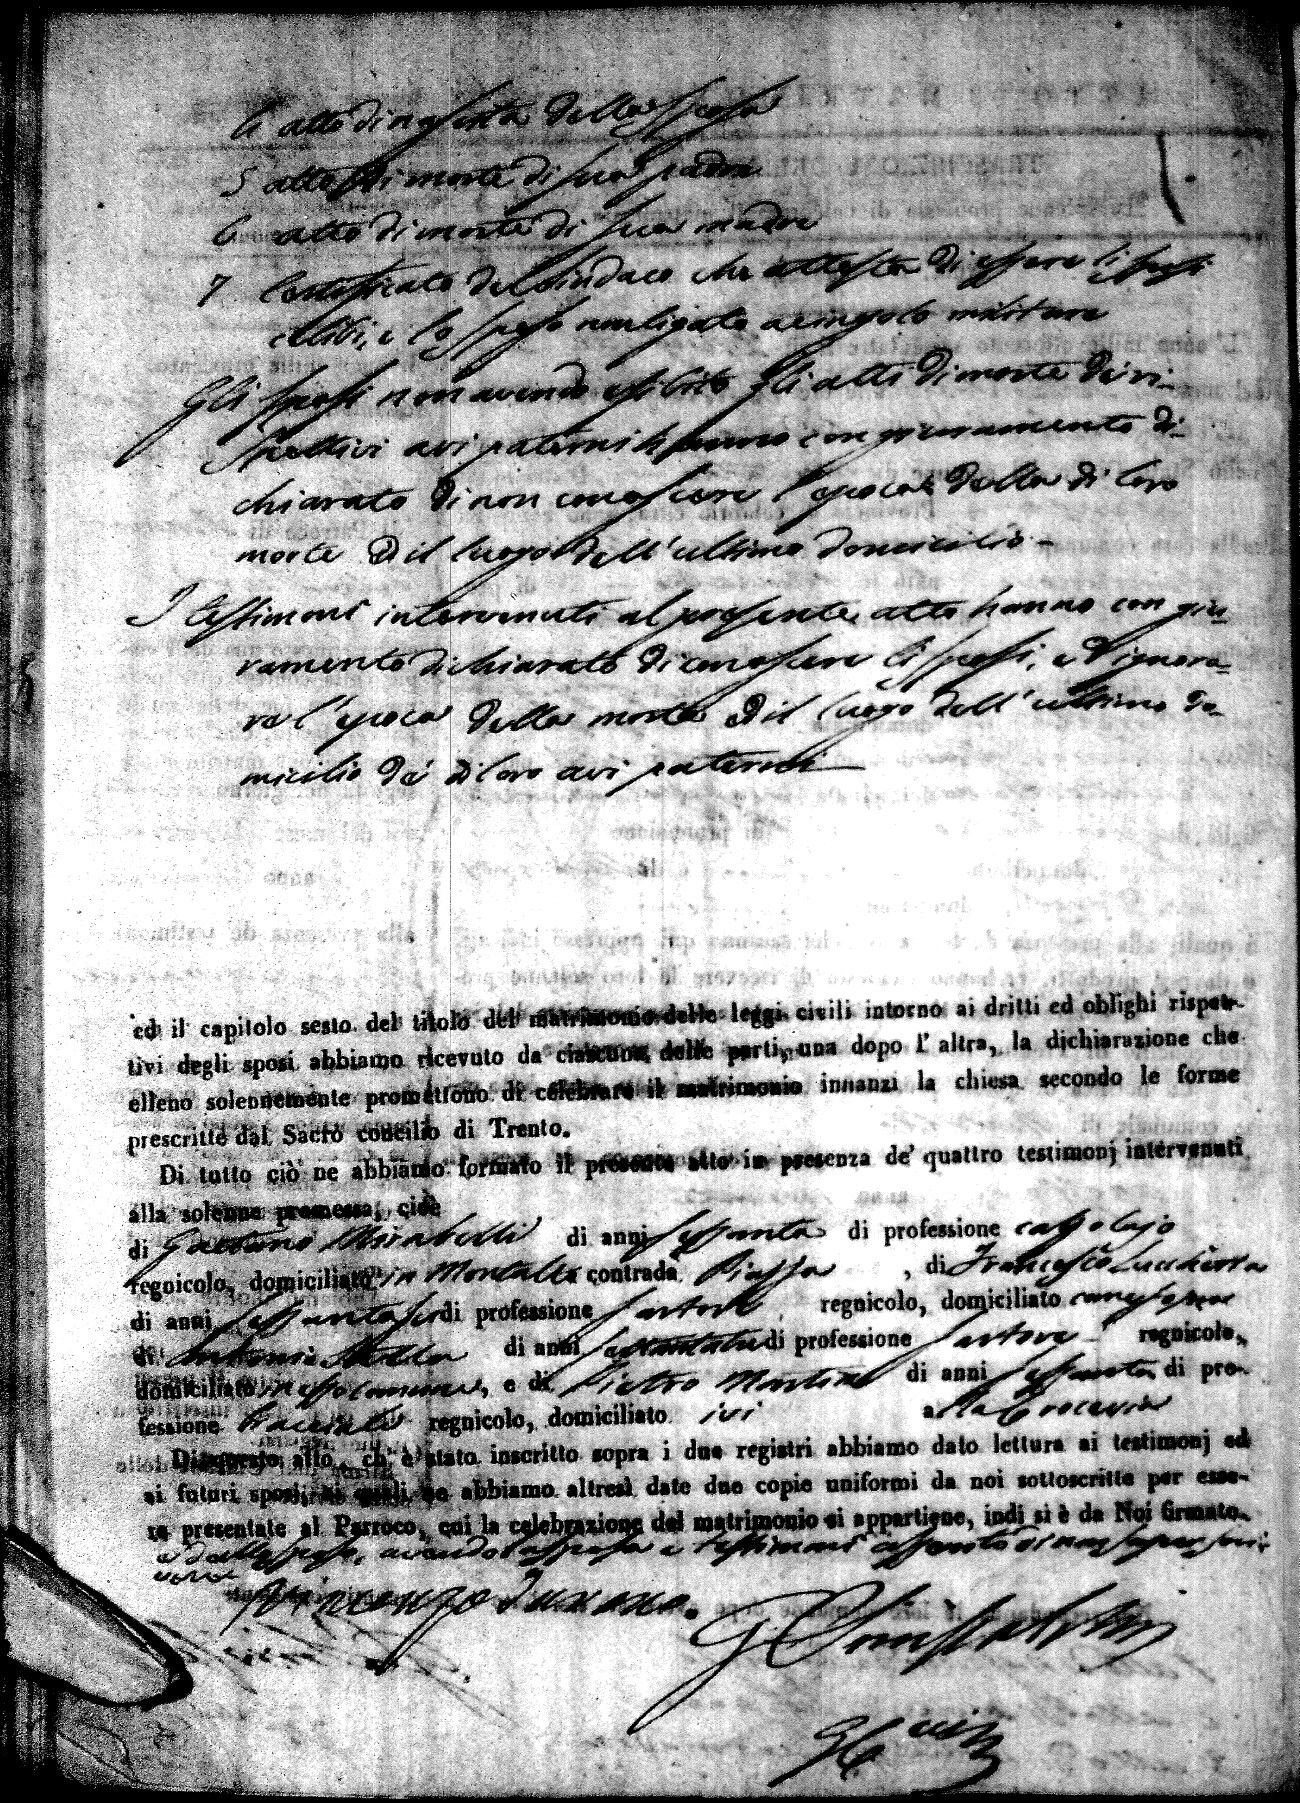 atto di nascita della sposa
5 atto di morte di suo padre
6 atto di morte di sua madre
7 Certificato del Sindaco che attesta di essere li sposi
celibi, e lo sposo non ligato a vincolo militare
Gli sposi non avendo esibito gli atti di morte de' ri-
spettivi avi paterni hanno con giuramento di-
chiarato di non conoscere l'epoca della di loro
morte ed il luogo dell'ultimo domicilio -
I testimoni intervenuti al presente atto hanno con giu-
ramento dichiarato di conoscere li sposi, e d'ignora-
re l'epoca della morte ed il luogo dell'ultimo do-
micilio de' di loro avi paterni
ed il capitolo sesto del titolo del matrimonio delle leggi civili intorno ai dritti ed obblighi rispet-
tivi degli sposi abbiamo ricevuto da ciascuna delle parti, una dopo l'altra, la dichiarazione che
elleno solennemente promettono di celebrare il matrimonio innanzi la chiesa secondo le forme
prescritte dal Sacro concilio di Trento.
Di tutto ciò ne abbiamo formato il presente atto in presenza de' quattro testimonj intervenuti
alla solenne promessa, cioè
di Gaetano Mirabelli di anni sessanta di professione calzolajo
regnicolo, domiciliato in Montalto contrada Piazza, di Francesco
di anni di professione sartore regnicolo, domiciliato
di Antonio Stella di anni di professione sartore regnicolo,
domiciliato, e di Pietro Martino di anni sessanta di pro-
fessione bracciale regnicolo, domiciliato ivi alla
Di questo atto, ch'è stato inscritto sopra i due registri abbiamo dato lettura ai testimonj ed
ai futuri sposi, ai quali ne abbiamo altresì date due copie uniformi da noi sottoscritte per esse-
re presentate al Parroco, cui la celebrazione del matrimonio si appartiene, indi si è da Noi firmato
e dallo sposo, avendo la sposa e testimoni assento di non sapere scri-
vere
Vincenzo